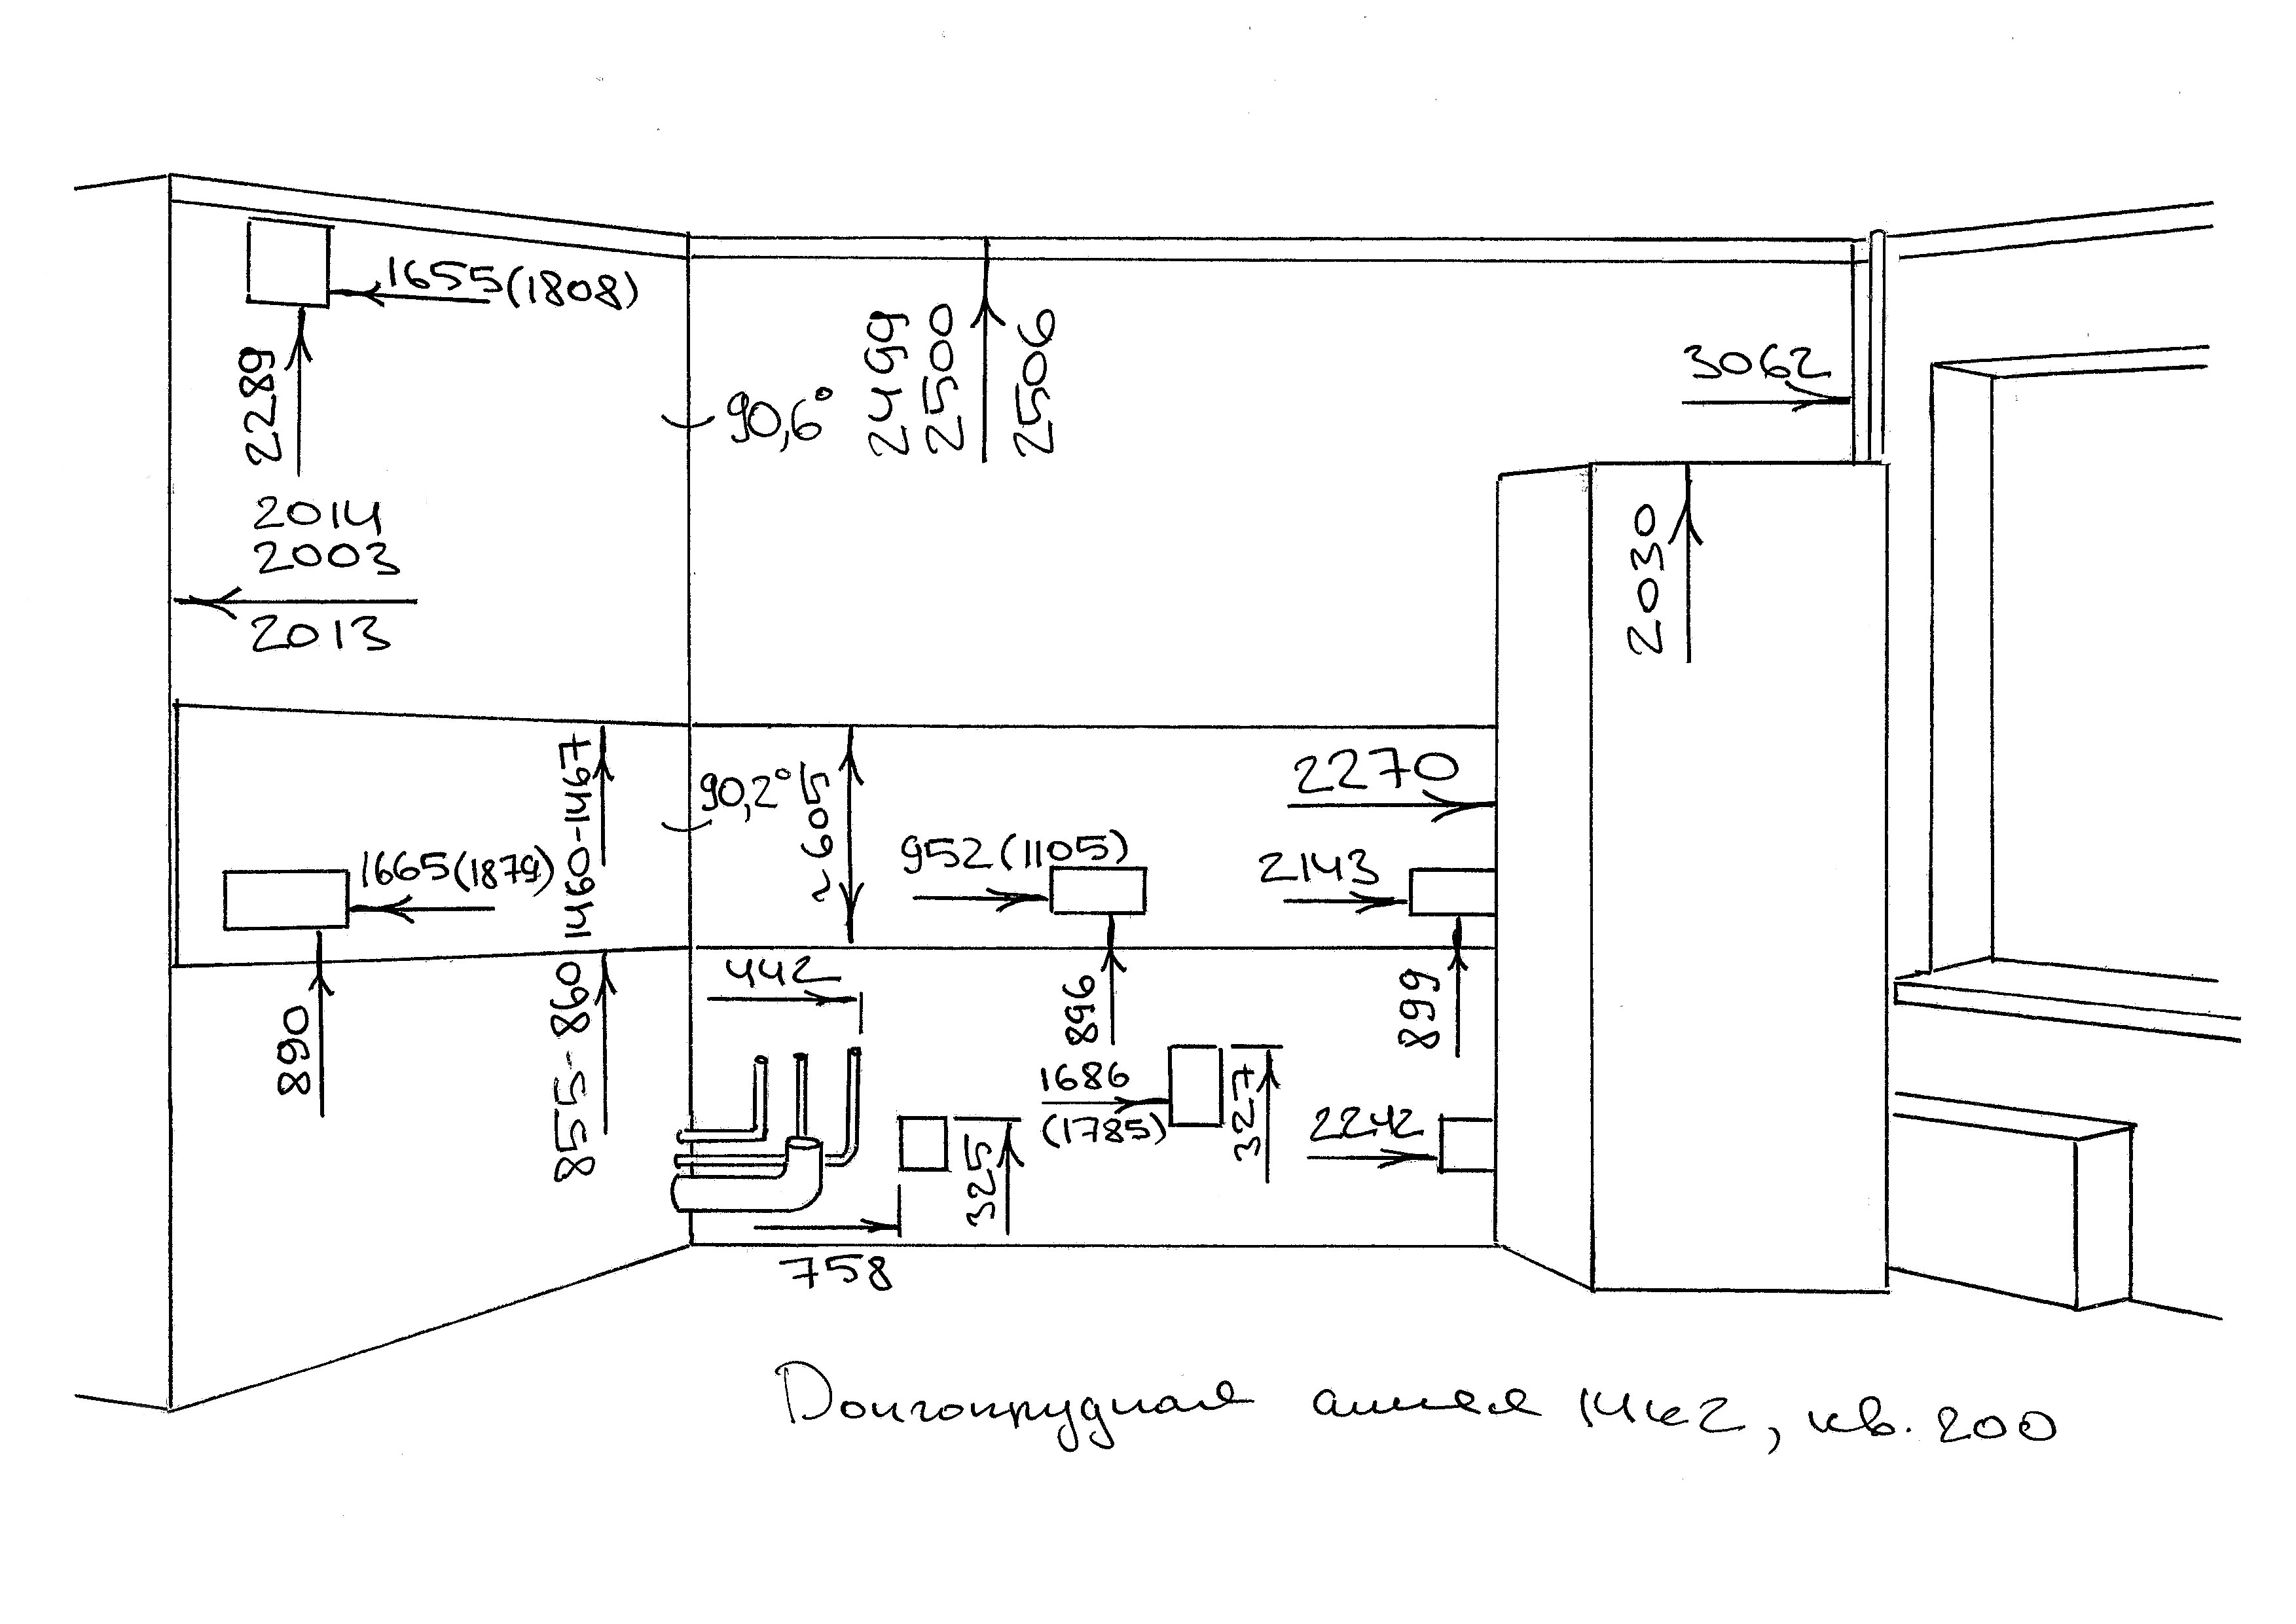 1655(1808)
2289
2014
2003
2013
90,6°
2499
2500
2506
3062
2030
1460-1467
90,2°
~605
2270
1665(1879)
952(1105)
2143
890
855-860
442
896
899
1686
(1785)
327
2242
325
758
Долгопрудная аллея 14к2, кв. 200